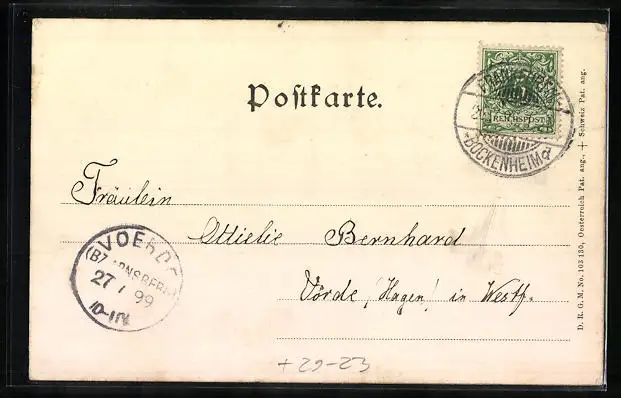 Postkarte.
REICHSPOST
BOCKENHEIM
Fräulein
Ottielie Bernhard
Vörde (Hagen) in Westf.
VOERDE
(BZ. ARNSBERG)
27 / 99
10-11V
+29-23
D. R. G. M. No. 103 130, Oesterreich Pat. ang., + Schweiz Pat. ang.